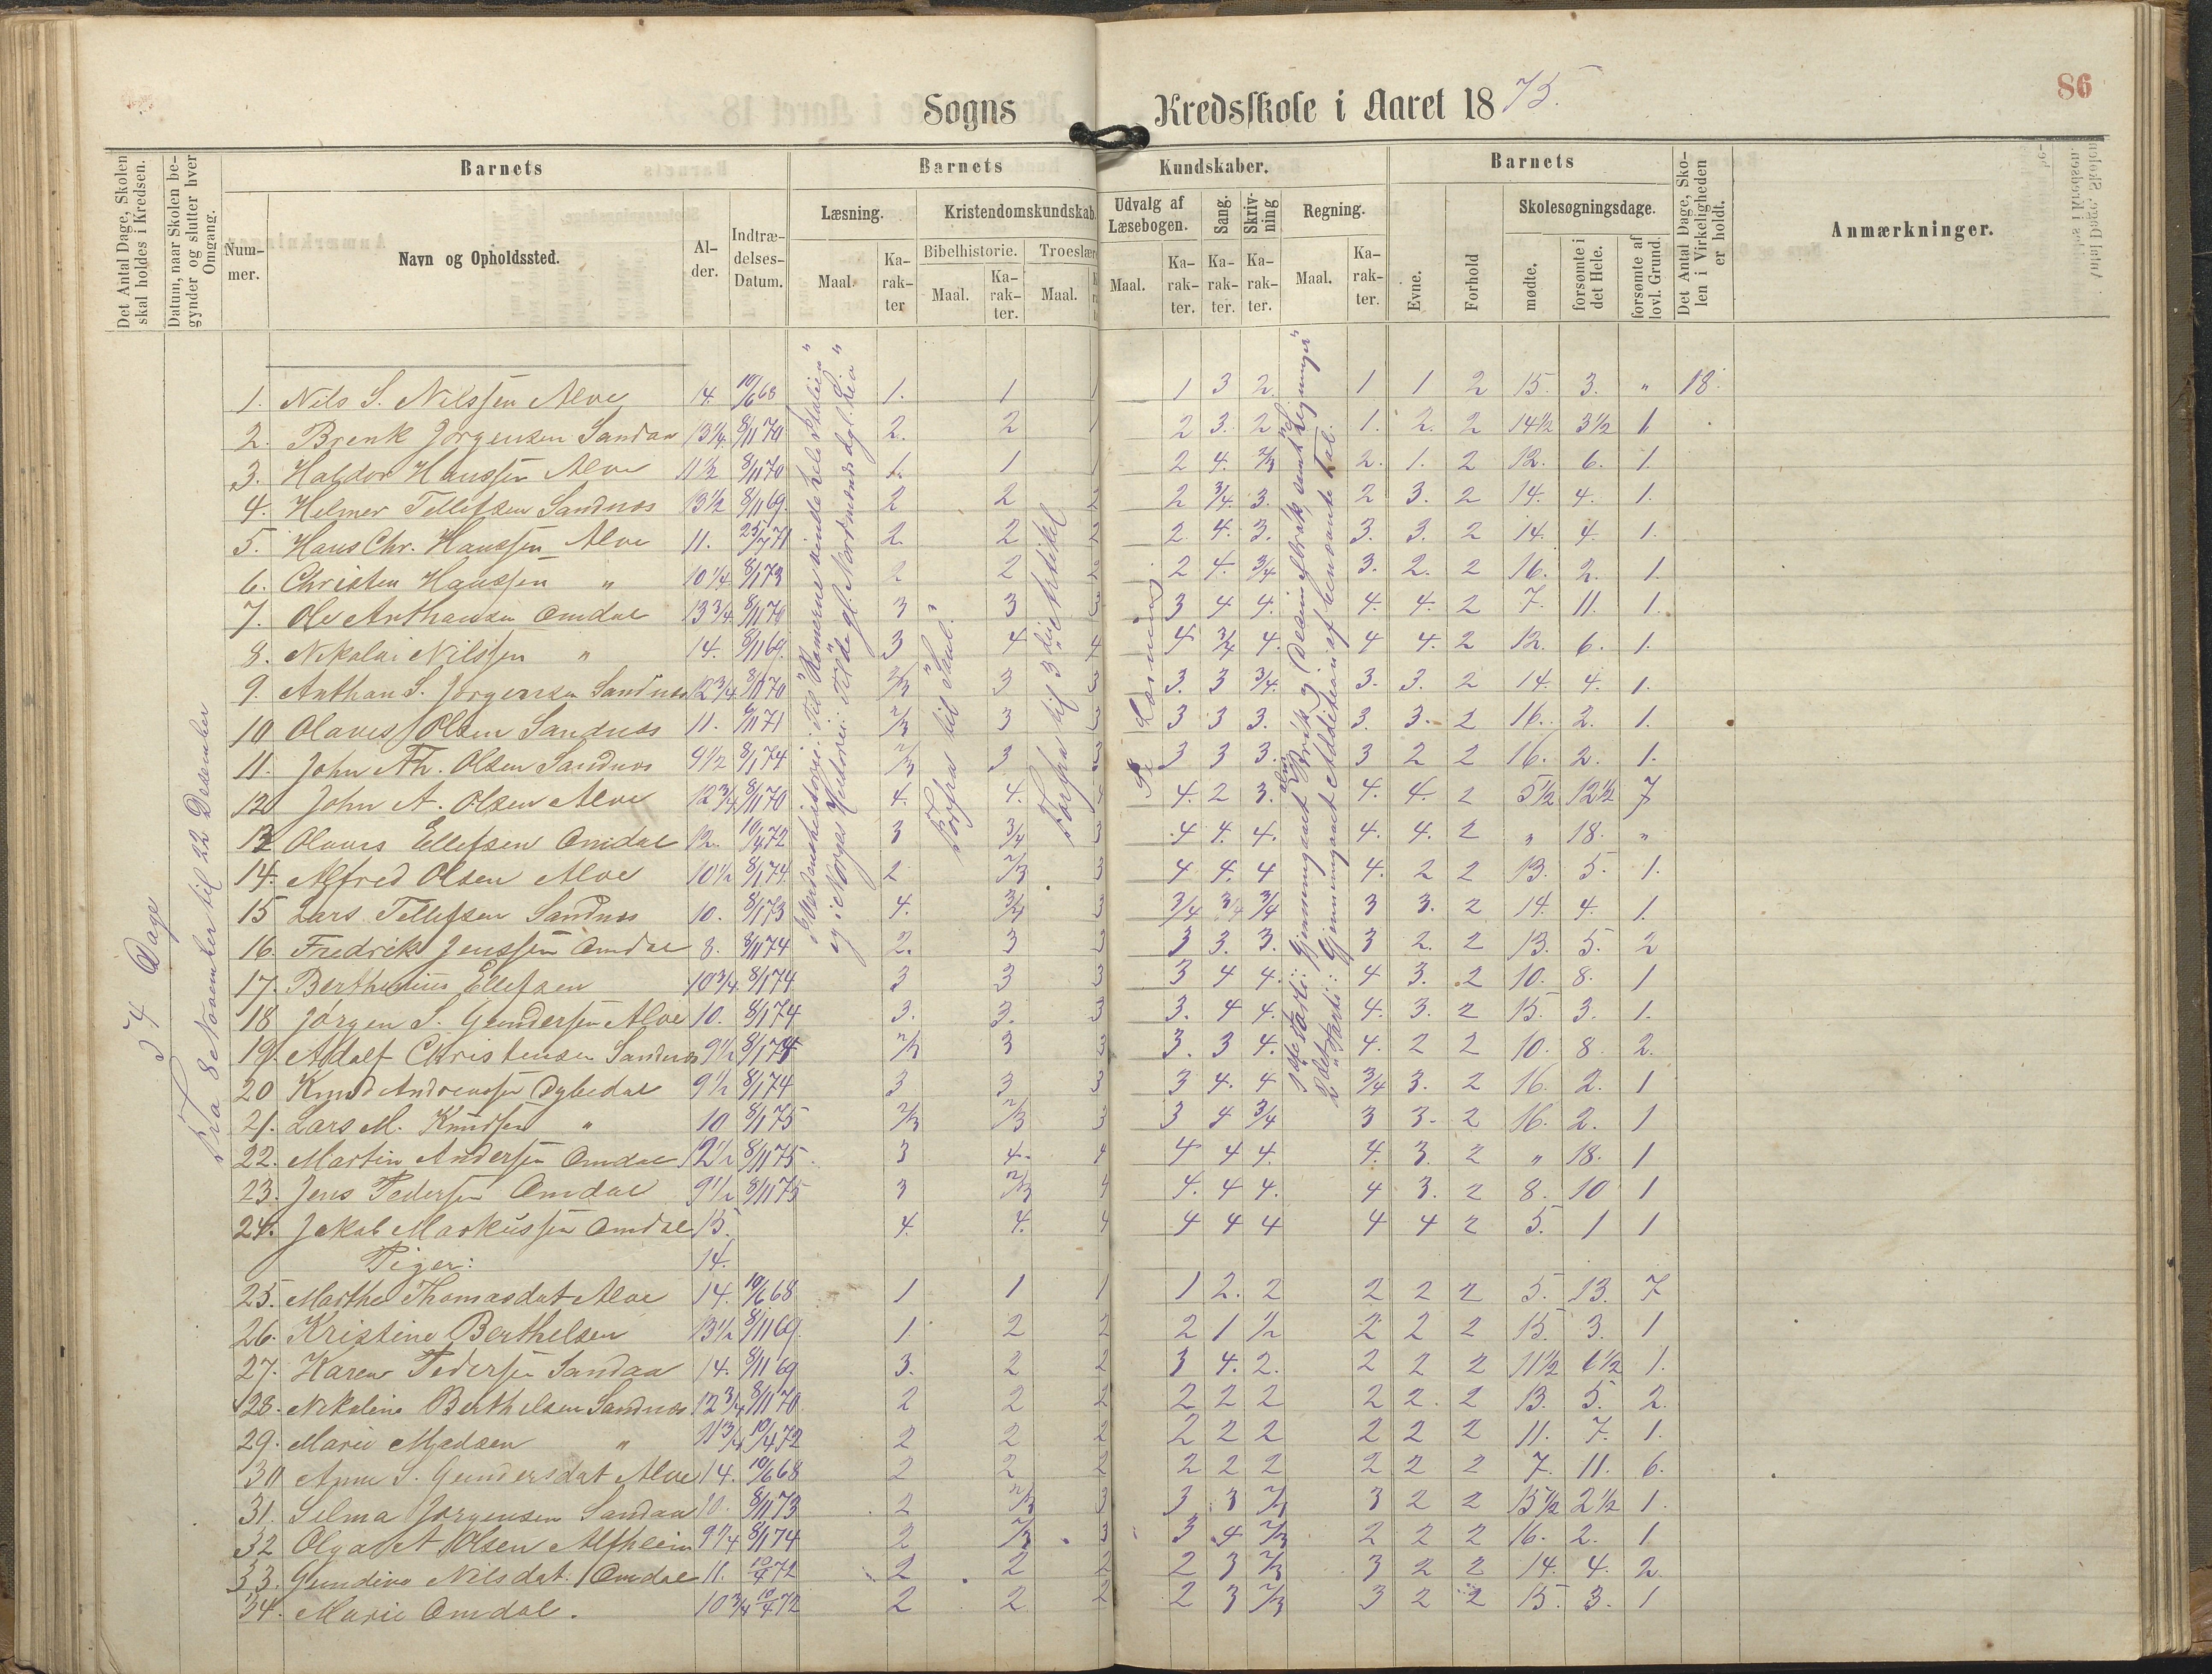 86
Sogns Kredsskole i Aaret 1875.
Det Antal Dage, Skolen skal holdes i Kredsen.
Datum, naar Skolen begynder og slutter hver Omgang.
Barnets
Nummer.
Navn og Opholdssted.
Alder.
Indtrædelses-Datum.
Barnets Kundskaber.
Læsning.
Maal.
Karakter
Kristendomskundskab.
Bibelhistorie.
Maal.
Karakter.
Troeslær
Maal.
Udvalg af Læsebogen.
Maal.
Karakter.
Sang.
Karakter.
Skrivning
Karakter.
Regning.
Maal.
Karakter.
Barnets
Evne.
Forhold
Skolesøgningsdage.
mødte.
forsømte i det Hele.
forsømte af lovl. Grund.
Det Antal Dage, Skolen i Virkeligheden er holdt.
Anmærkninger.
34 Dage
Fra 8 November til 22 Desember
Forfra til "Saul".
Forfra til 3die Artikel
1. Nils S. Nilssen Alve 14. 10/6 68 1. 1 1 1 3 2 1 1 2 15. 3. " 18.
2. Brenk Jørgensen Sandaa 13¼ 8/11 70 2. 2 1 2 3. 2 1. 2. 2 14½ 3½ 1.
3. Haldor Hanssen Alve 11½ 8/11 70 1. 1 1 2 4. 2/3 2. 1. 2 12. 6. 1.
4. Helmer Tellefsen Sandnes 13½ 8/11 69. 2 2 2 2 3/4 3. 2 3. 2 14. 4. 1.
5. Hans Chr. Hanssen Alve 11. 25/7 71 2. 2 2 2 4. 3. 3. 3. 2 14. 4. 1.
6. Christen Hanssen " 10¼ 8/1 73 2 2 2 2 4. 3/4 3. 2. 2 16. 2. 1.
7. Ole Anthonsen Omdal 13¾ 8/11 70 3 3 3 3 4 4. 4. 4. 2 7. 11. 1.
8. Nikolai Nilssen " 14. 8/11 69. 3 4 4 4 3/4 4. 4 4. 2 12. 6. 1.
9. Anthon S. Jørgensen Sandnes 12¾ 8/11 70 2/3 3 3 3. 3 3/4. 3. 3. 2 14. 4. 1.
10 Olaves Olsen Sandnes 11. 8/11 71 2/3 3 3 3 3 3. 3. 3. 2 16. 2. 1.
11. John Th. Olsen Sandnes 9½ 8/1 74 2/3 3 3 3 3 3. 3 2 2 16. 2. 1.
12 John A. Olsen Alve 12¾ 8/11 70 4. 4. 4 4. 2 3. 4. 4. 2 5½ 12½ 7
13 Olaves Ellefsen Omdal 12. 10/4 72 3 3/4 3 4 4. 4. 4. 4. 2 " 18. "
14. Alfred Olsen Alve 10½ 8/1 74. 2 2/3 3 4 4. 4 4. 2 2 13. 5. 1.
15 Lars Tellefsen Sandnes 10. 8/1 73 4. 3/4 3 3/4 3/4 3/4 3 3. 2 14. 4. 1.
16. Fredrik Jenssen Omdal 8. 8/11 74 2. 3 3 3 3. 3. 3 2. 2 13. 5. 2
17. Berthinius Ellefsen 10¾ 8/1 74 3 3 3 3 4 4. 4 3. 2 10. 8. 1
18 Jørgen S. Gundersen Alve 10. 8/1 74 3. 3. 3 3. 4 4. 4. 3. 2 15. 3. 1.
19. Adolf Christensen Sandnes 9½ 8/1 74 2/3 3 3 3. 3 4. 4. 2 2 10. 8. 2.
20 Knud Andreassen Dybedal 9½ 8/1 74 3 3 3 3 4. 4 3/4 3. 2 16. 2. 1
21. Lars M. Knudsen " 10 8/1 75 2/3 2/3 3 3 4 3/4 3 3. 2 16. 2. 1
22. Martin Andersen Omdal 12½ 8/11 75. 3 4. 4 4 4 4. 4. 3. 2 " 18. 1
23. Jens Pedersen Omdal 9½ 8/11 75 3 2/3 4 4. 4 4. 4 3. 2 8. 10 1
24. Jakob Markussen Omdal 15. 4. 4. 4 4 4 4 4 4 2 5. 1 1
Piger: 14.
25. Marthe Thomasdat Alve 14. 10/6 68 1 1 1 1 2. 2 2 2 2 5. 13. 7
26. Kristine Berthelsen 13½ 8/11 69. 1. 2 2 2 1 ½ 2 2 2 15. 3. 1
27. Karen Pedersen Sandaa 14. 8/11 69 3. 2 2 3 4. 2. 2 2 2 11½ 6½ 1.
28. Nikoline Berthelsen Sandnes 12¾ 8/11 70. 2 2 2 2 2 2 2 2. 2 13. 5. 2.
29. Marie Madsen " 11¾ 10/4 72 2 2 2 2 2 2 2 2 2 11. 7. 1.
30 Anne S. Gundersdat Alve 14. 10/6 68 2 2 2 2 2 2 2 2 2 7. 11. 6.
31. Selma Jørgensen Sandaa 10. 8/11 73 2 2/3 3 3 3 2/3 3 2 2 15½ 2½ 1.
32 Olga A Olsen Alfheim 9¼ 8/1 74 2 2/3 3 3 4 2/3 2 2 2 16. 2. 1
33. Gundine Nilsdat. Omdal 11. 10/4 72 2 2 2 2 3 2/3 3 2 2 14. 4. 2.
34. Marie Omdal. 10¾ 10/4 72 2 2 2 2 3 2/3 3 2 2 15. 3. 1